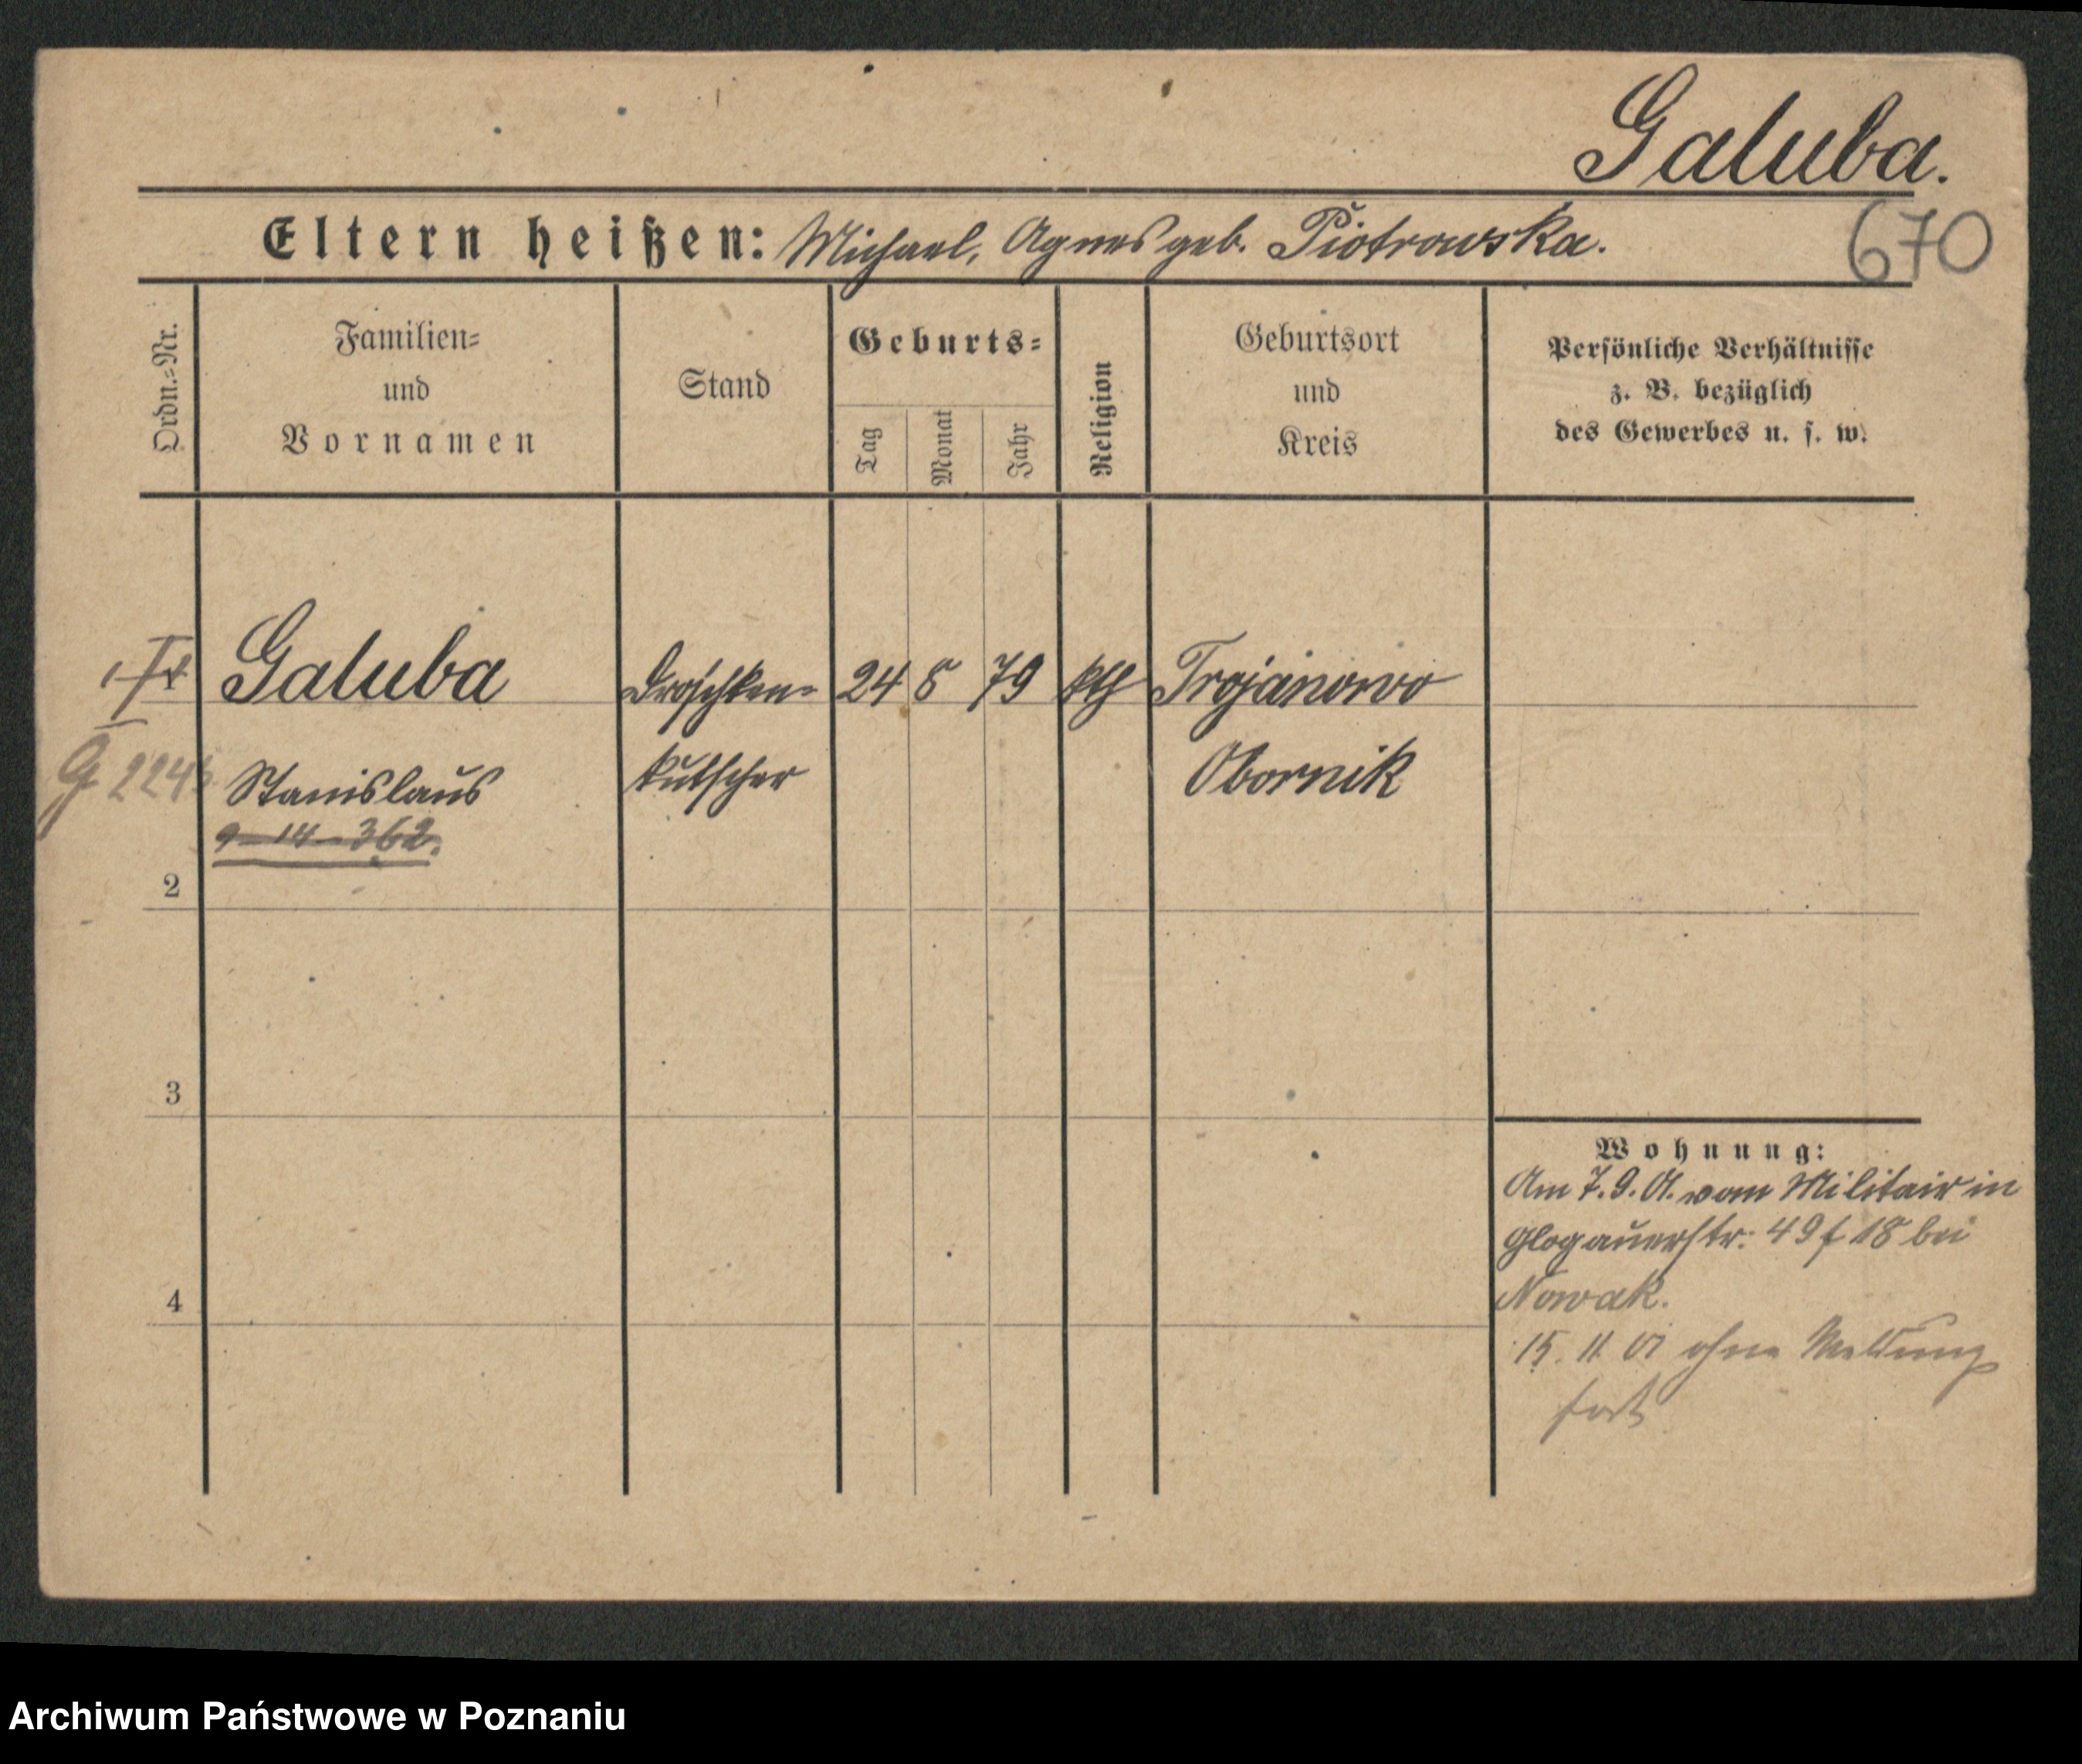 Galuba.
Eltern heißen: Michael, Agnes geb. Piotrowska.
670
Ordn.-Nr.
Familien-
und
Vornamen
Stand
Geburts-
Tag
Monat
Jahr
Religion
Geburtsort
und
Kreis
Persönliche Verhältnisse
z. B. bezüglich
des Gewerbes u. s. w.
1
Galuba
Droschken-
24 8 79
kth
Trojanowo
G 224
Stanislaus
kutscher
Obornik
9-14-362.
2
3
4
Wohnung:
Am 7.9.01. vom Militair in
Glogauerstr: 49 f 18 bei
Nowak.
15. 11 01 ohne Meldung
fort
Archiwum Państwowe w Poznaniu